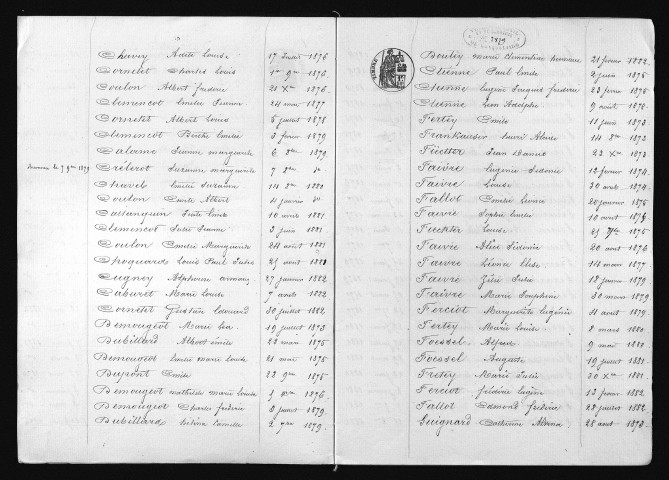 Chavey Adèle Louise 17 juillet 1876
Cornetet Charles Louis 1er 9bre 1876
Coulon Albert frédéric 21 Xbre 1876
Clemencot Emilie Jeanne 24 mai 1877
Cornetet Albert Louis 6 juillet 1878
Clemencot Berthe Emilie 3 février 1879
Calame Jeanne marguerite 6 8bre 1879
7 9bre 1879
Crélerot Suzanne marguerite 7 8bre do
Chavel Emilie Suzanne 14 8bre 1880
Coulon Albert 4 février do
Julie Emile 10 avril 1881
Clemencot Jules 3 juin 1881
Coulon Emilie Marguerite 24 août 1881
Choquard Louis Paul Jules 21 août 1881
Cugney Alphonse 27 janvier 1882
Caburet Marie Louise 7 août 1882
Cornetet Gustave Edouard 30 juillet 1882
Demougeot Marie Léa 19 juillet 1873
Dubillard Albert Emile 23 mars 1875
Demougeot Emilie marie Louise 21 mai 1875
Dupont Emile 22 9bre 1875
Demougeot mathilde marie Louise 1876
Demougeot Charles frédéric 8 juillet 1879
Dubillard Camille 2 1879
1879
TIMBRE
marie Clementine 21 février 1882
Etienne Paul Emile 2 juin 1875
Etienne Eugène Jacques frédéric 23 février 1875
Etienne Léon Adolphe 9 août 1878
Fertey Emile 11 juin 1873
Frankhauser 14 8bre 1872
Jean Daniel 22 Xbre 1873
Faivre Eugénie 12 février 1874
Faivre Louise 20 août 1874
Fallot 20 février 1875
Faivre Sophie Emilie 10 août 1875
Louise 25 1875
Faivre Alice 20 août 1876
Faivre Léonie Elise 14 mai 1877
Faivre Zélie Julie 18 janvier 1879
Faivre Marie Joséphine 30 mars 1879
Ferciot Marguerite Eugénie 21 août 1879
Fertey Marie Louise 8 mars 1880
Foessel Alfred 9 mai 1880
Foessel Auguste 19 juillet 1881
Marie Julie 20 Xbre 1881
Ferciot frédéric Eugène 13 février 1882
Fallot Edmond frédéric 22 juillet 1882
Guignard Catherine 28 août 1873